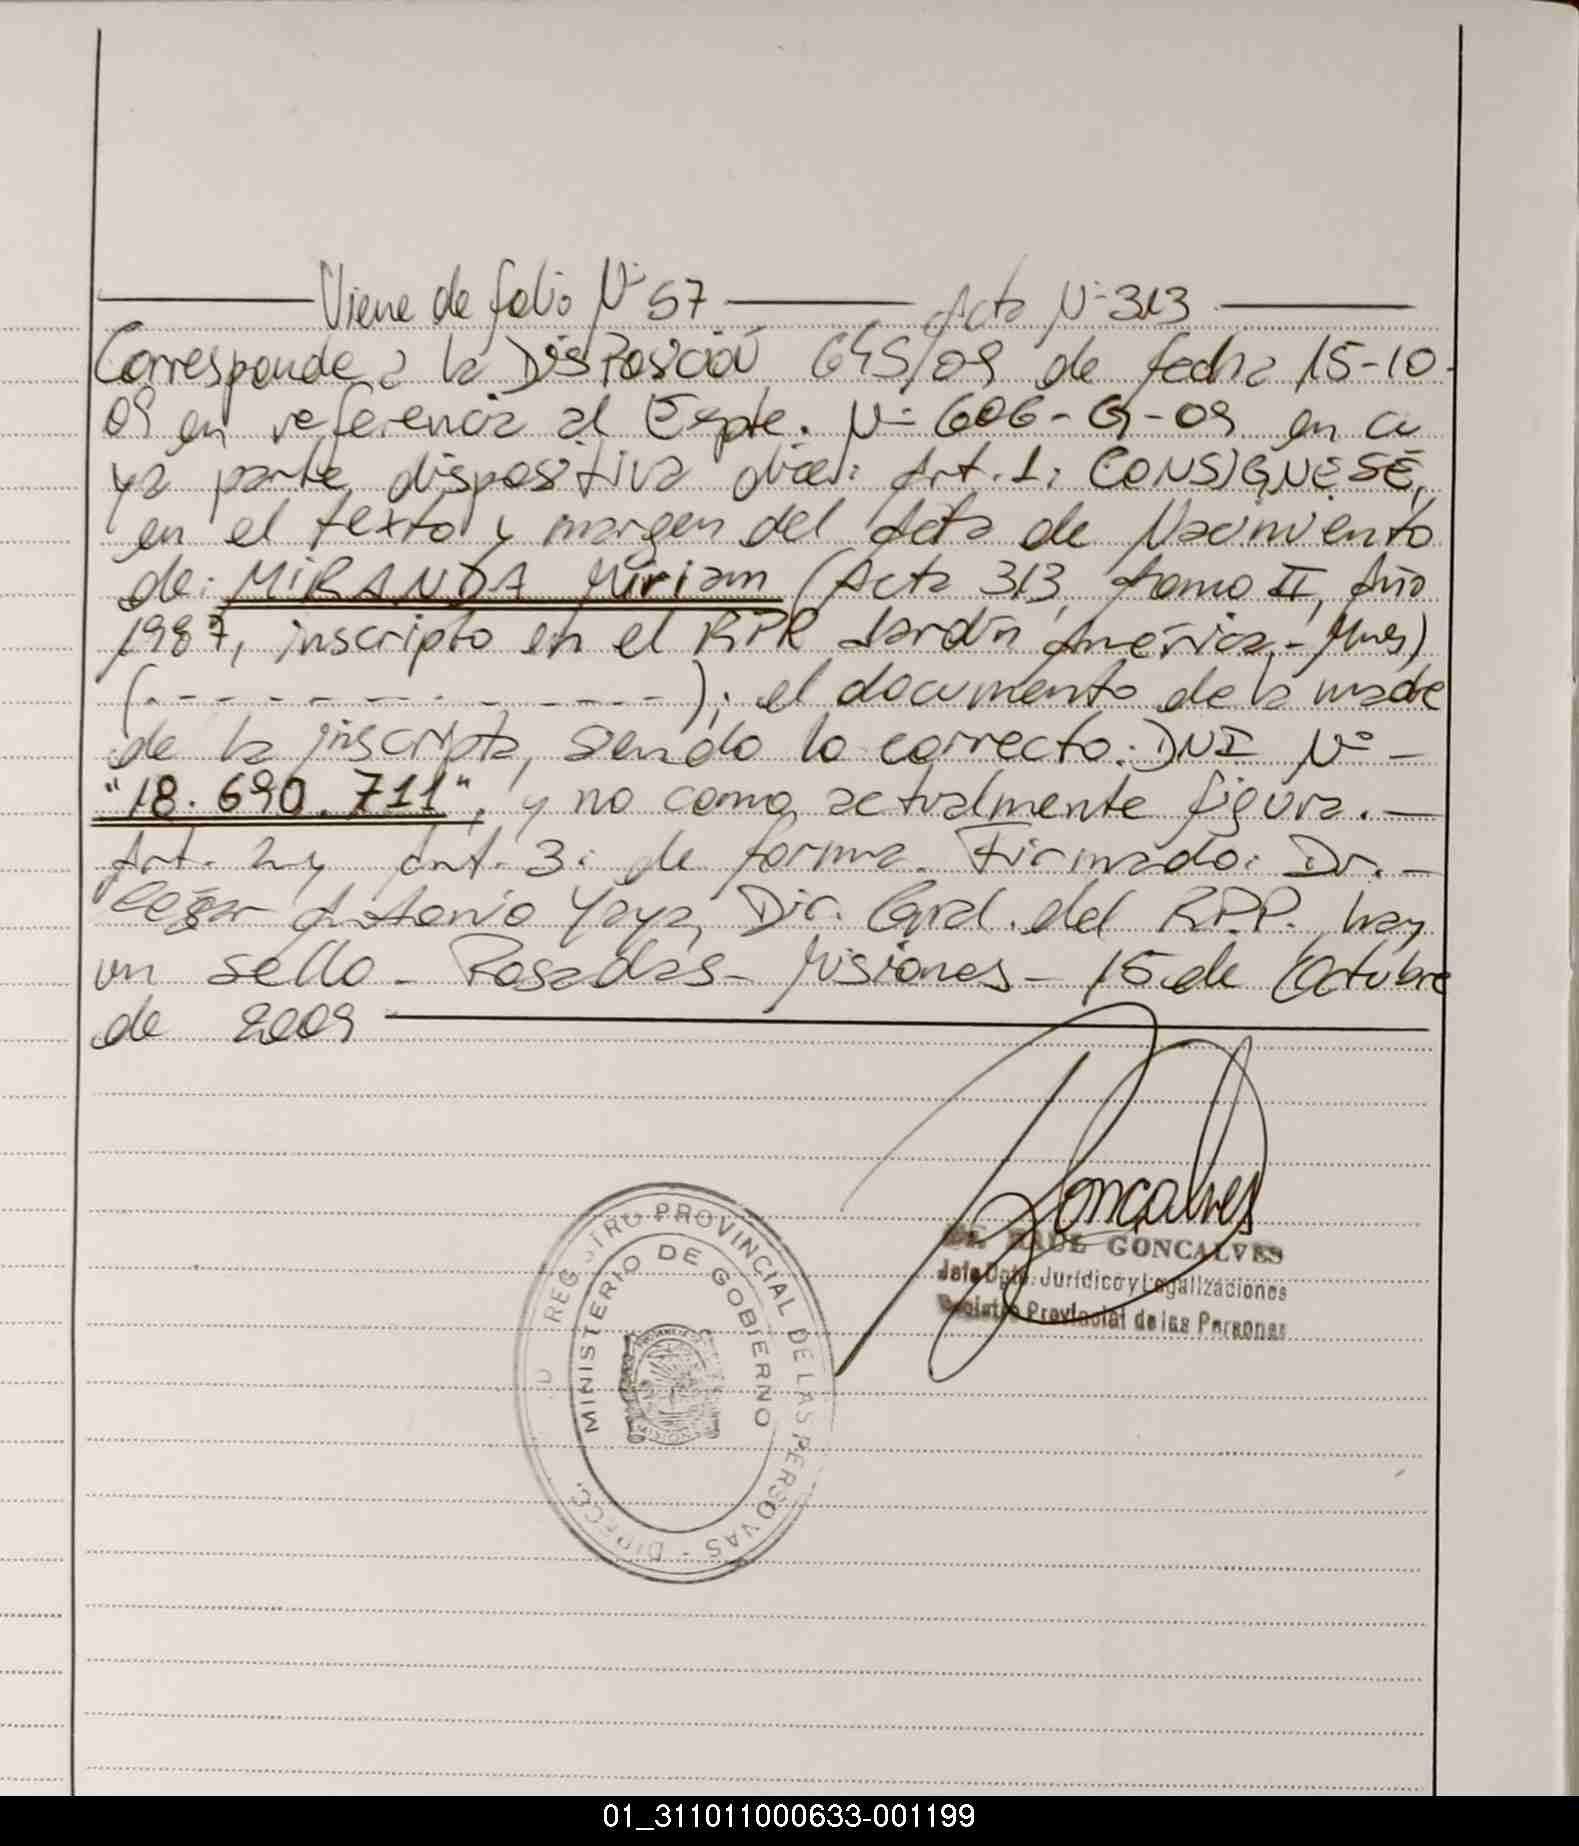 Viene de folio Nº 57 Acta Nº 313
Corresponde a la Disposición 645/09 de fecha 15-10-
09 en referencia al Expte. Nº 606-G-09 en cu
ya parte dispositiva dice: Art. 1: CONSIGNESE,
en el texto y margen del Acta de Nacimiento
de: MIRANDA Miriam (Acta 313, tomo II, Año
1987, inscripto en el RPP Jardín América - Mnes)
(- - - - - - - - - - -); el documento de la madre
de la inscripta, siendo lo correcto: DNI Nº -
"18.690.711", y no como actualmente figura. -
Art. 2 y Art. 3: de forma. Firmado: Dr. -
César Antonio Yaya, Dir. Gral. del R.P.P. hay
un sello - Posadas - Misiones - 15 de Octubre
de 2009
Goncalves
Dr. RAUL GONCALVES
Jefe Dpto. Jurídico y Legalizaciones
Registro Provincial de las Personas
REGISTRO PROVINCIAL DE LAS PERSONAS - DIRECC.
MINISTERIO DE GOBIERNO
01_311011000633-001199